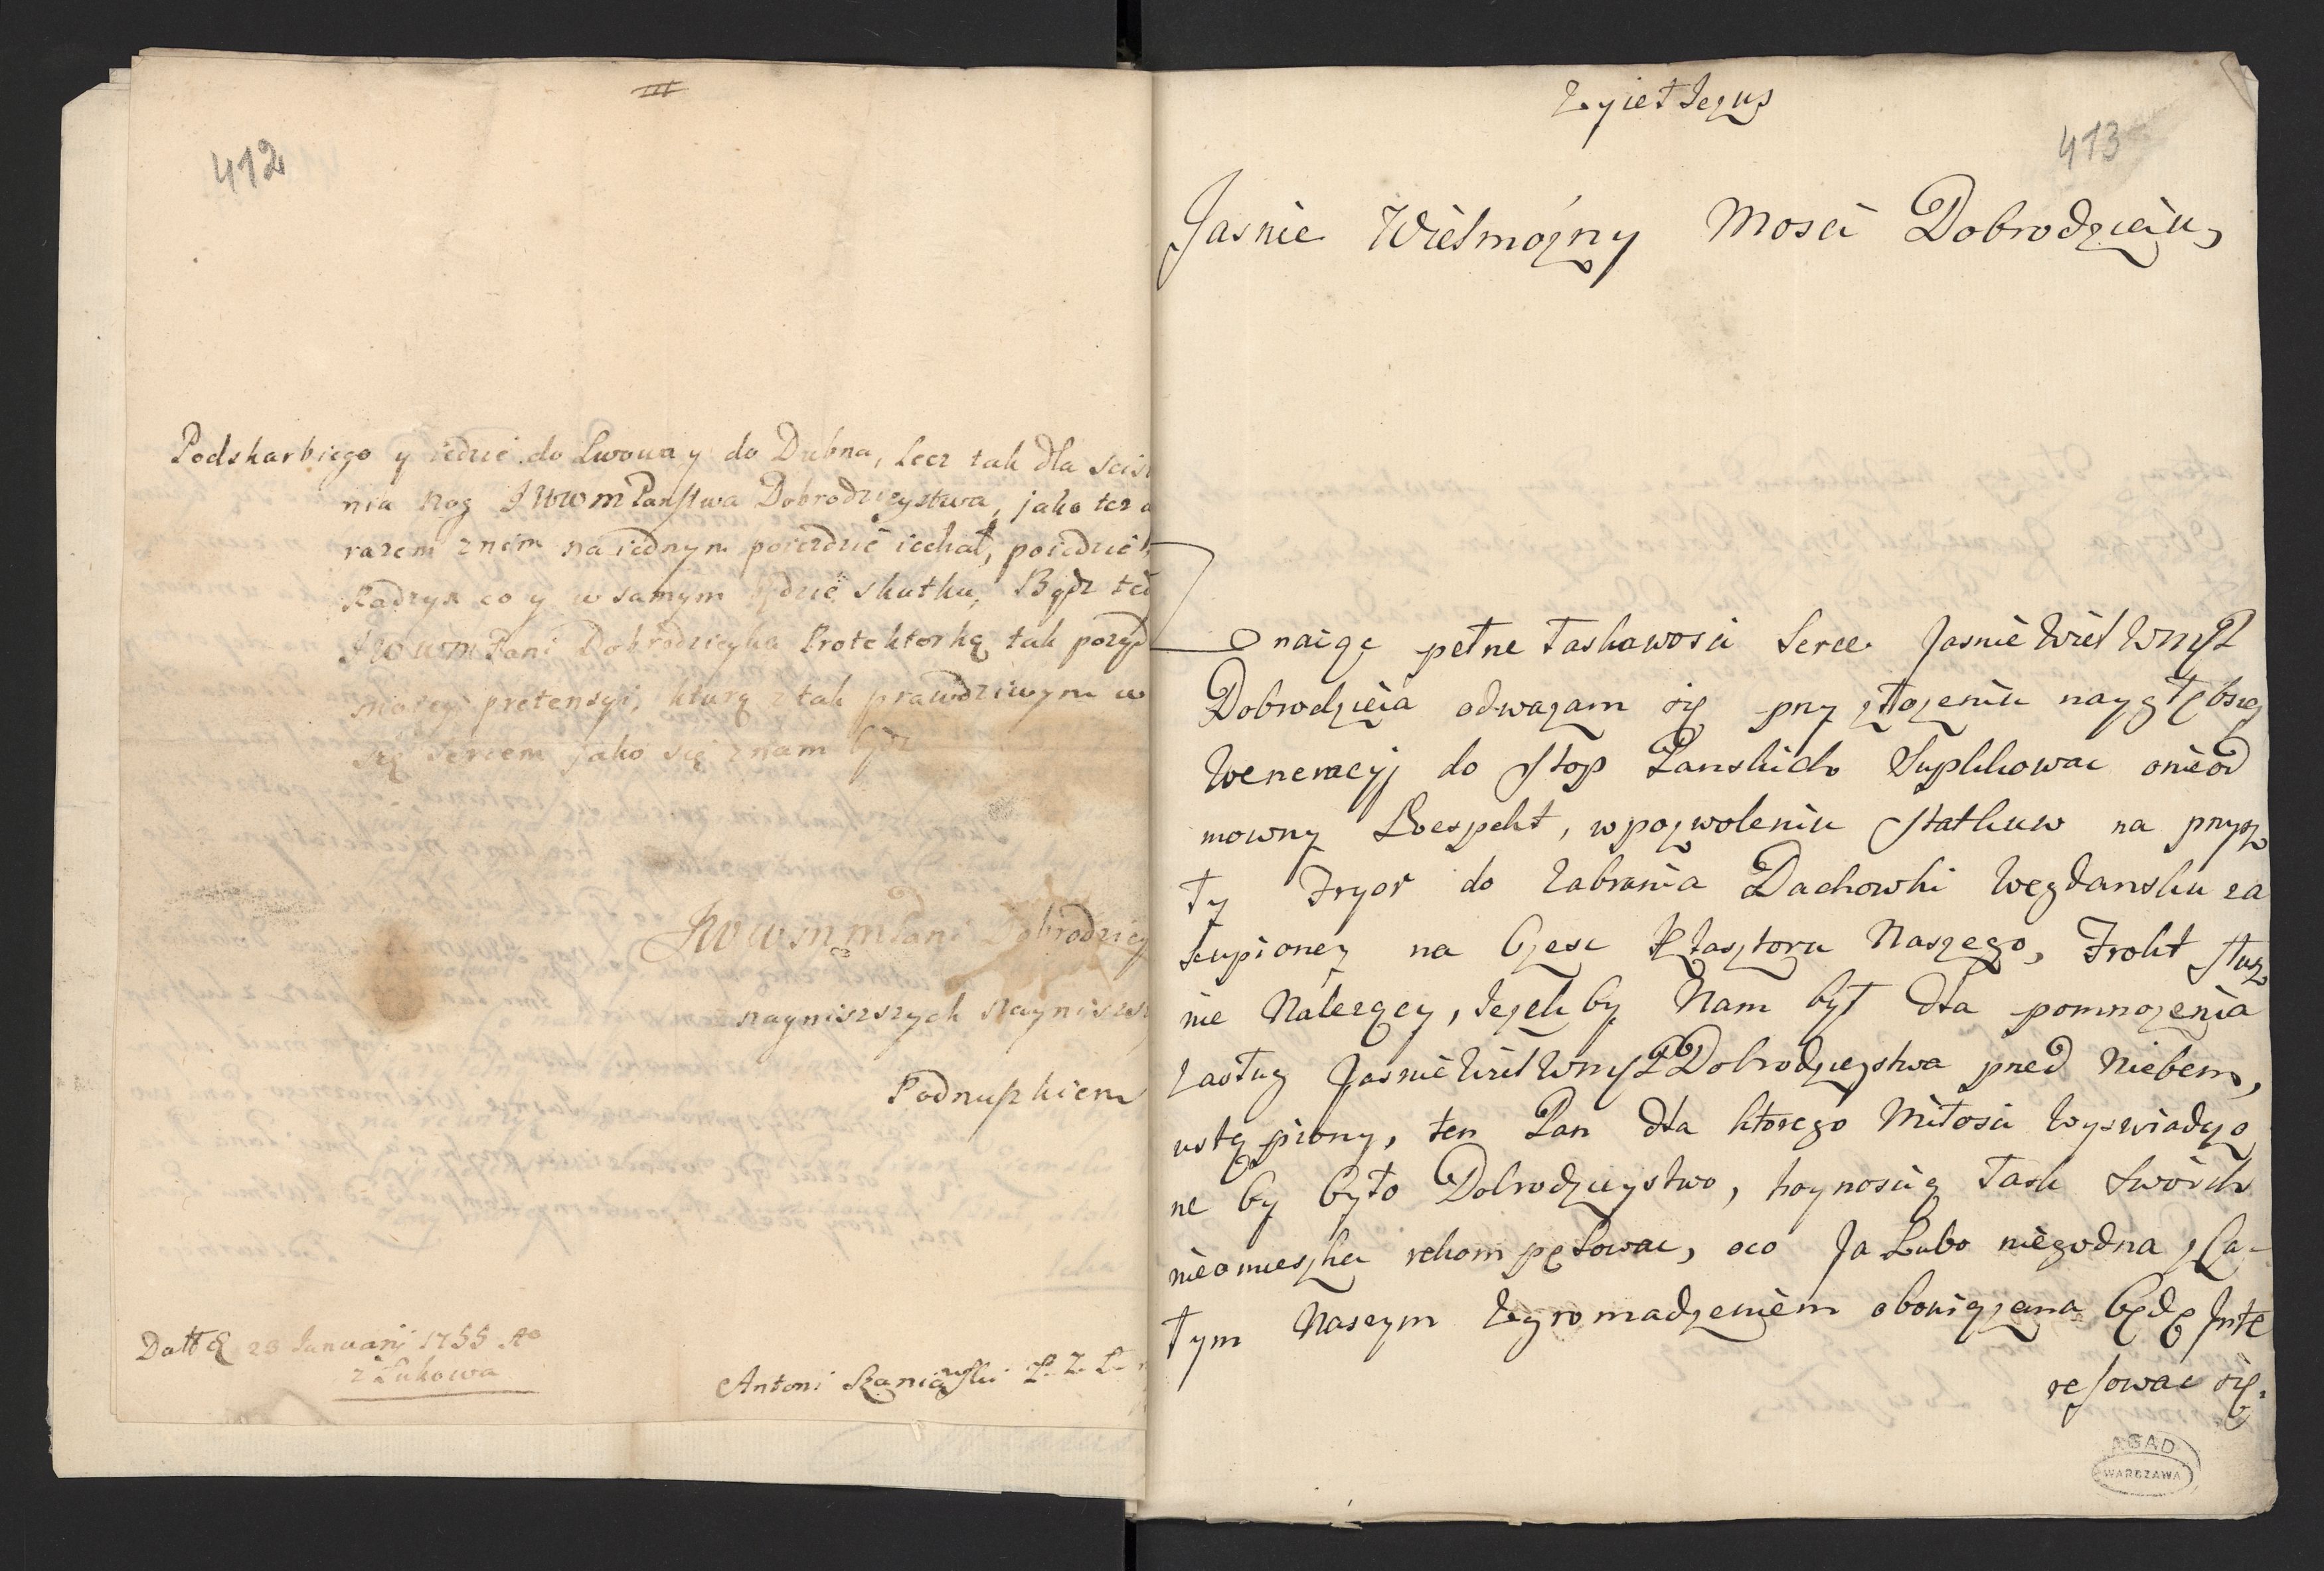 412
Podskarbiego y iedzie do Lwowa y do Dubna, lecz tak dla scis
nia nog JWWMPanstwa Dobrodzieystwa, jako tez
razem z nim na iednym poiezdzie iechał, poiedzie
Radzyn co y w samym będzie skutku, Bądz
JWWM Pani Dobrodzieyka Protektorką tak
moiey pretensyi, ktorą z tak prawdziwym
się sercem jako się znam bydz
JWWMM Pani Dobrodziey
naynizszych naynizsz
Podnuszkiem
Datt 23 Januarij 1755 Ao
z Łukowa
Antoni
Zyie Jezus
413
Jasnie Wielmozny Mosci Dobrodzieiu,
Znaiąc pełne łaskawosci Serce Jasnie Wiel WMJP
Dobrodzieia odwazam się przy złozeniu naygłębszey
Weneracyj do Stop Panskich Suplikowac o nieod
mowny Respekt, w pozwoleniu Statkuw na przysz
ły Fryor do Zabrania Dachowki w Gdansku za
kupioney na Czesc Klasztoru Naszego, Frokt słusz
nie Nalezącey, Jezeli by Nam był dla pomnozenia
zasług Jasnie Wiel WMJPDobrodzieystwa przed Niebem,
ustąpiony, ten Pan dla ktorego Miłosci Wyswiadczo
ne by było Dobrodzieystwo, hoynoscią łask Swoich
nieomieszka rekompęsowac, oco Ja Lubo niegodna z Ca-
łym Naszym Zgromadzeniem obowiązana będę Inte
resowac się.
AGAD
WARSZAWA